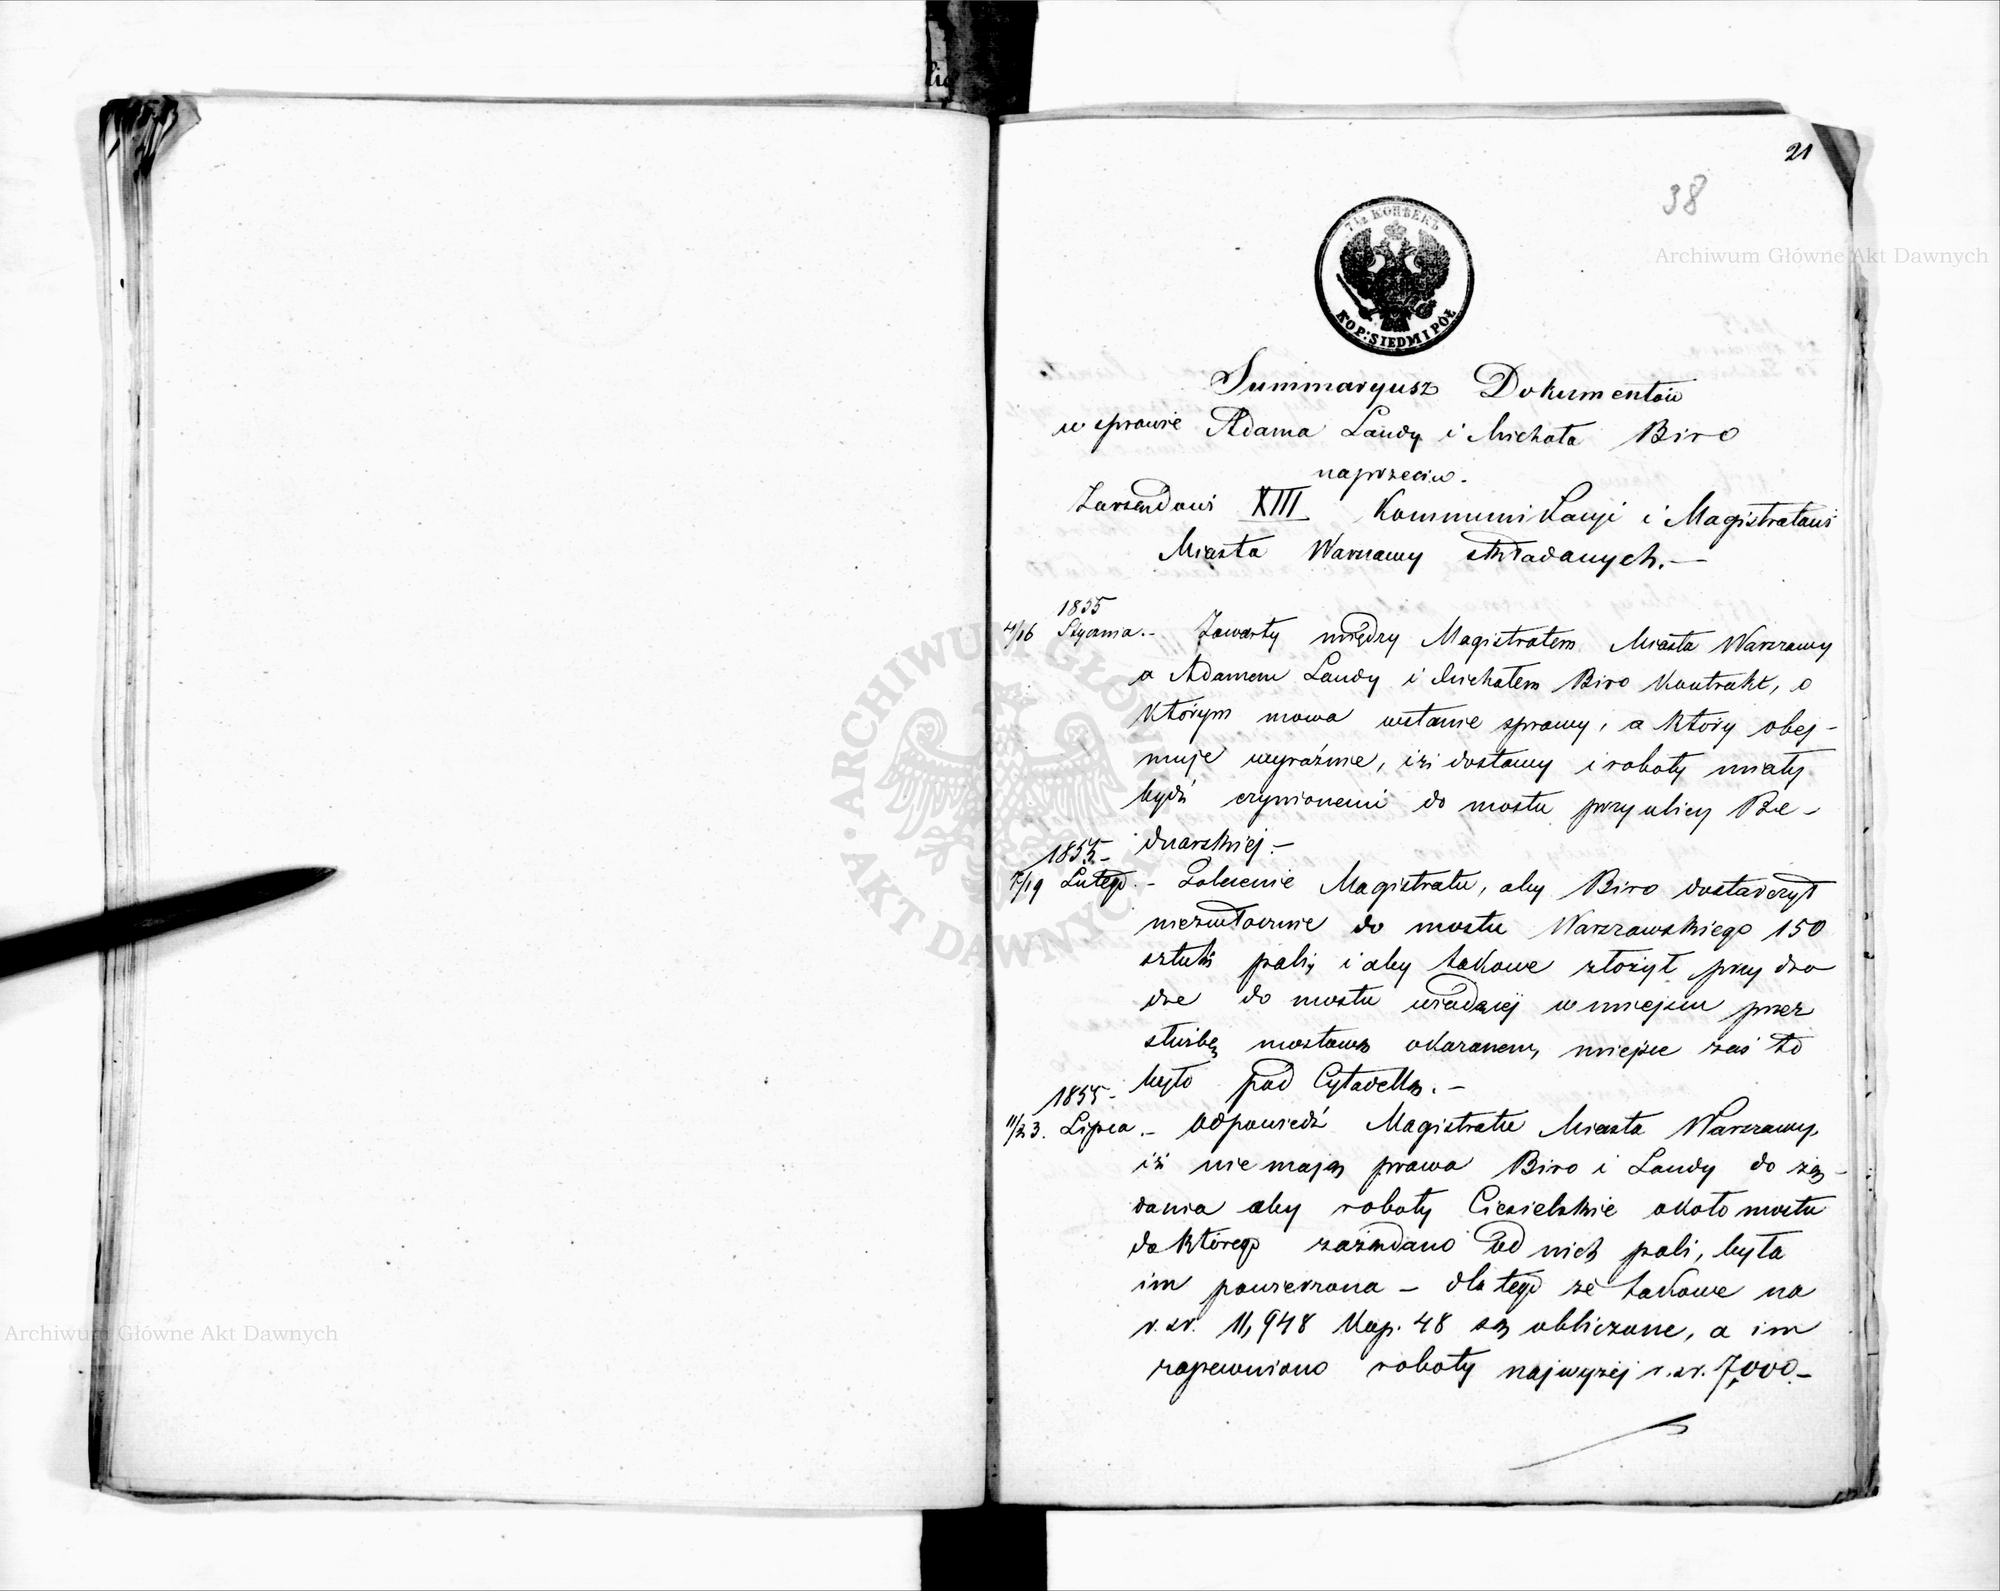 21
38
7 1/2 КОПѢЕКЪ
KOP: SIEDM I PÓŁ
Summaryusz Dokumentów
w sprawie Adama Landy i Michała Biro
naprzeciw.
Zarządowi XIII Kommunikacyi i Magistratowi
Miasta Warszawy składanych.—
1855
4/16 Stycznia.- Zawarty między Magistratem Miasta Warszawy
a Adamem Landy i Michałem Biro Kontrakt, o
którym mowa w stanie sprawy, a który obej-
muje wyraźnie, iż dostawy i roboty miały
bydź czynionemi do mostu przy ulicy Be-
dnarskiej.-
1855-
7/19 Lutego.- Polecenie Magistratu, aby Biro dostarczył
niezwłocznie do mostu Warszawskiego 150
sztuk pali, i aby takowe złożył przy dro
dze do mostu wiodącej w miejscu przez
służbę mostową okazanem, miejsce zaś to
było pod Cytadellą.-
1855-
11/23. Lipca.- Odpowiedź Magistratu Miasta Warszawy,
iż nie mają prawa Biro i Landy do żą-
dania aby roboty Ciesielskie około mostu
do którego zażądano od nich pali, była
im powierzona - dla tego że takowe na
r. sr. 11,948 kop. 48 są obliczone, a im
zapewniono roboty najwyżej r. sr. 7,000.-
Archiwum Główne Akt Dawnych
ARCHIWUM GŁÓWNE AKT DAWNYCH
Archiwum Główne Akt Dawnych